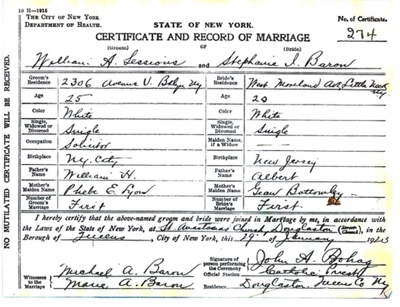 10 H-1915
THE CITY OF NEW YORK
DEPARTMENT OF HEALTH.
STATE OF NEW YORK.
No. of Certificate.
CERTIFICATE AND RECORD OF MARRIAGE
274
(Groom) OF (Bride)
William H. Sessions and Stephanie I. Baron
Groom's Residence 2306 Avenue V. Bklyn Ny Bride's Residence West Moreland Ave Little Neck Ny
Age 25 Age 20
Color White Color White
Single, Widowed or Divorced Single Single, Widowed or Divorced Single
Occupation Solicitor Maiden Name, if a Widow —
Birthplace Ny. City Birthplace New Jersey
Father's Name William H. Father's Name Albert
Mother's Maiden Name Phebe E Lyon Mother's Maiden Name
Number of Groom's Marriage First Number of Bride's Marriage First
I hereby certify that the above-named groom and bride were joined in Marriage by me, in accordance
with the Laws of the State of New York, at St. Anastasia Church, Douglaston
Borough of Queens, City of New York, this 29 of January
Signature of person performing the Ceremony John A.
Official Catholic Priest
Witnesses to the Marriage Michael A. Baron
Marie A. Baron
Residence Douglaston Queens Co Ny
NO MUTILATED CERTIFICATE WILL BE RECEIVED.